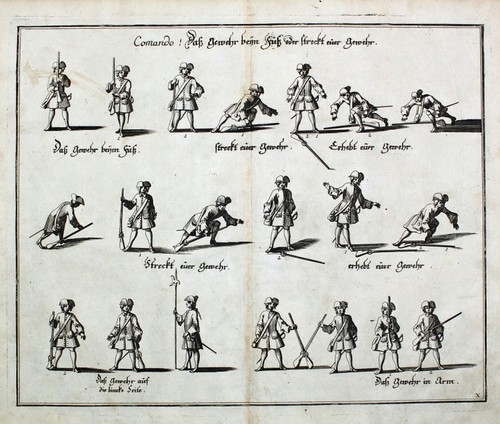 Comando! Daß Gewehr beÿm Fuß oder streckt euer Gewehr.
Daß Gewehr beÿm Fuß.
streckt euer Gewehr.
Erhebt euer Gewehr.
Streckt euer Gewehr.
erhebt euer Gewehr.
Daß Gewehr auf
die lincke Seite.
Daß Gewehr in Arm.
X